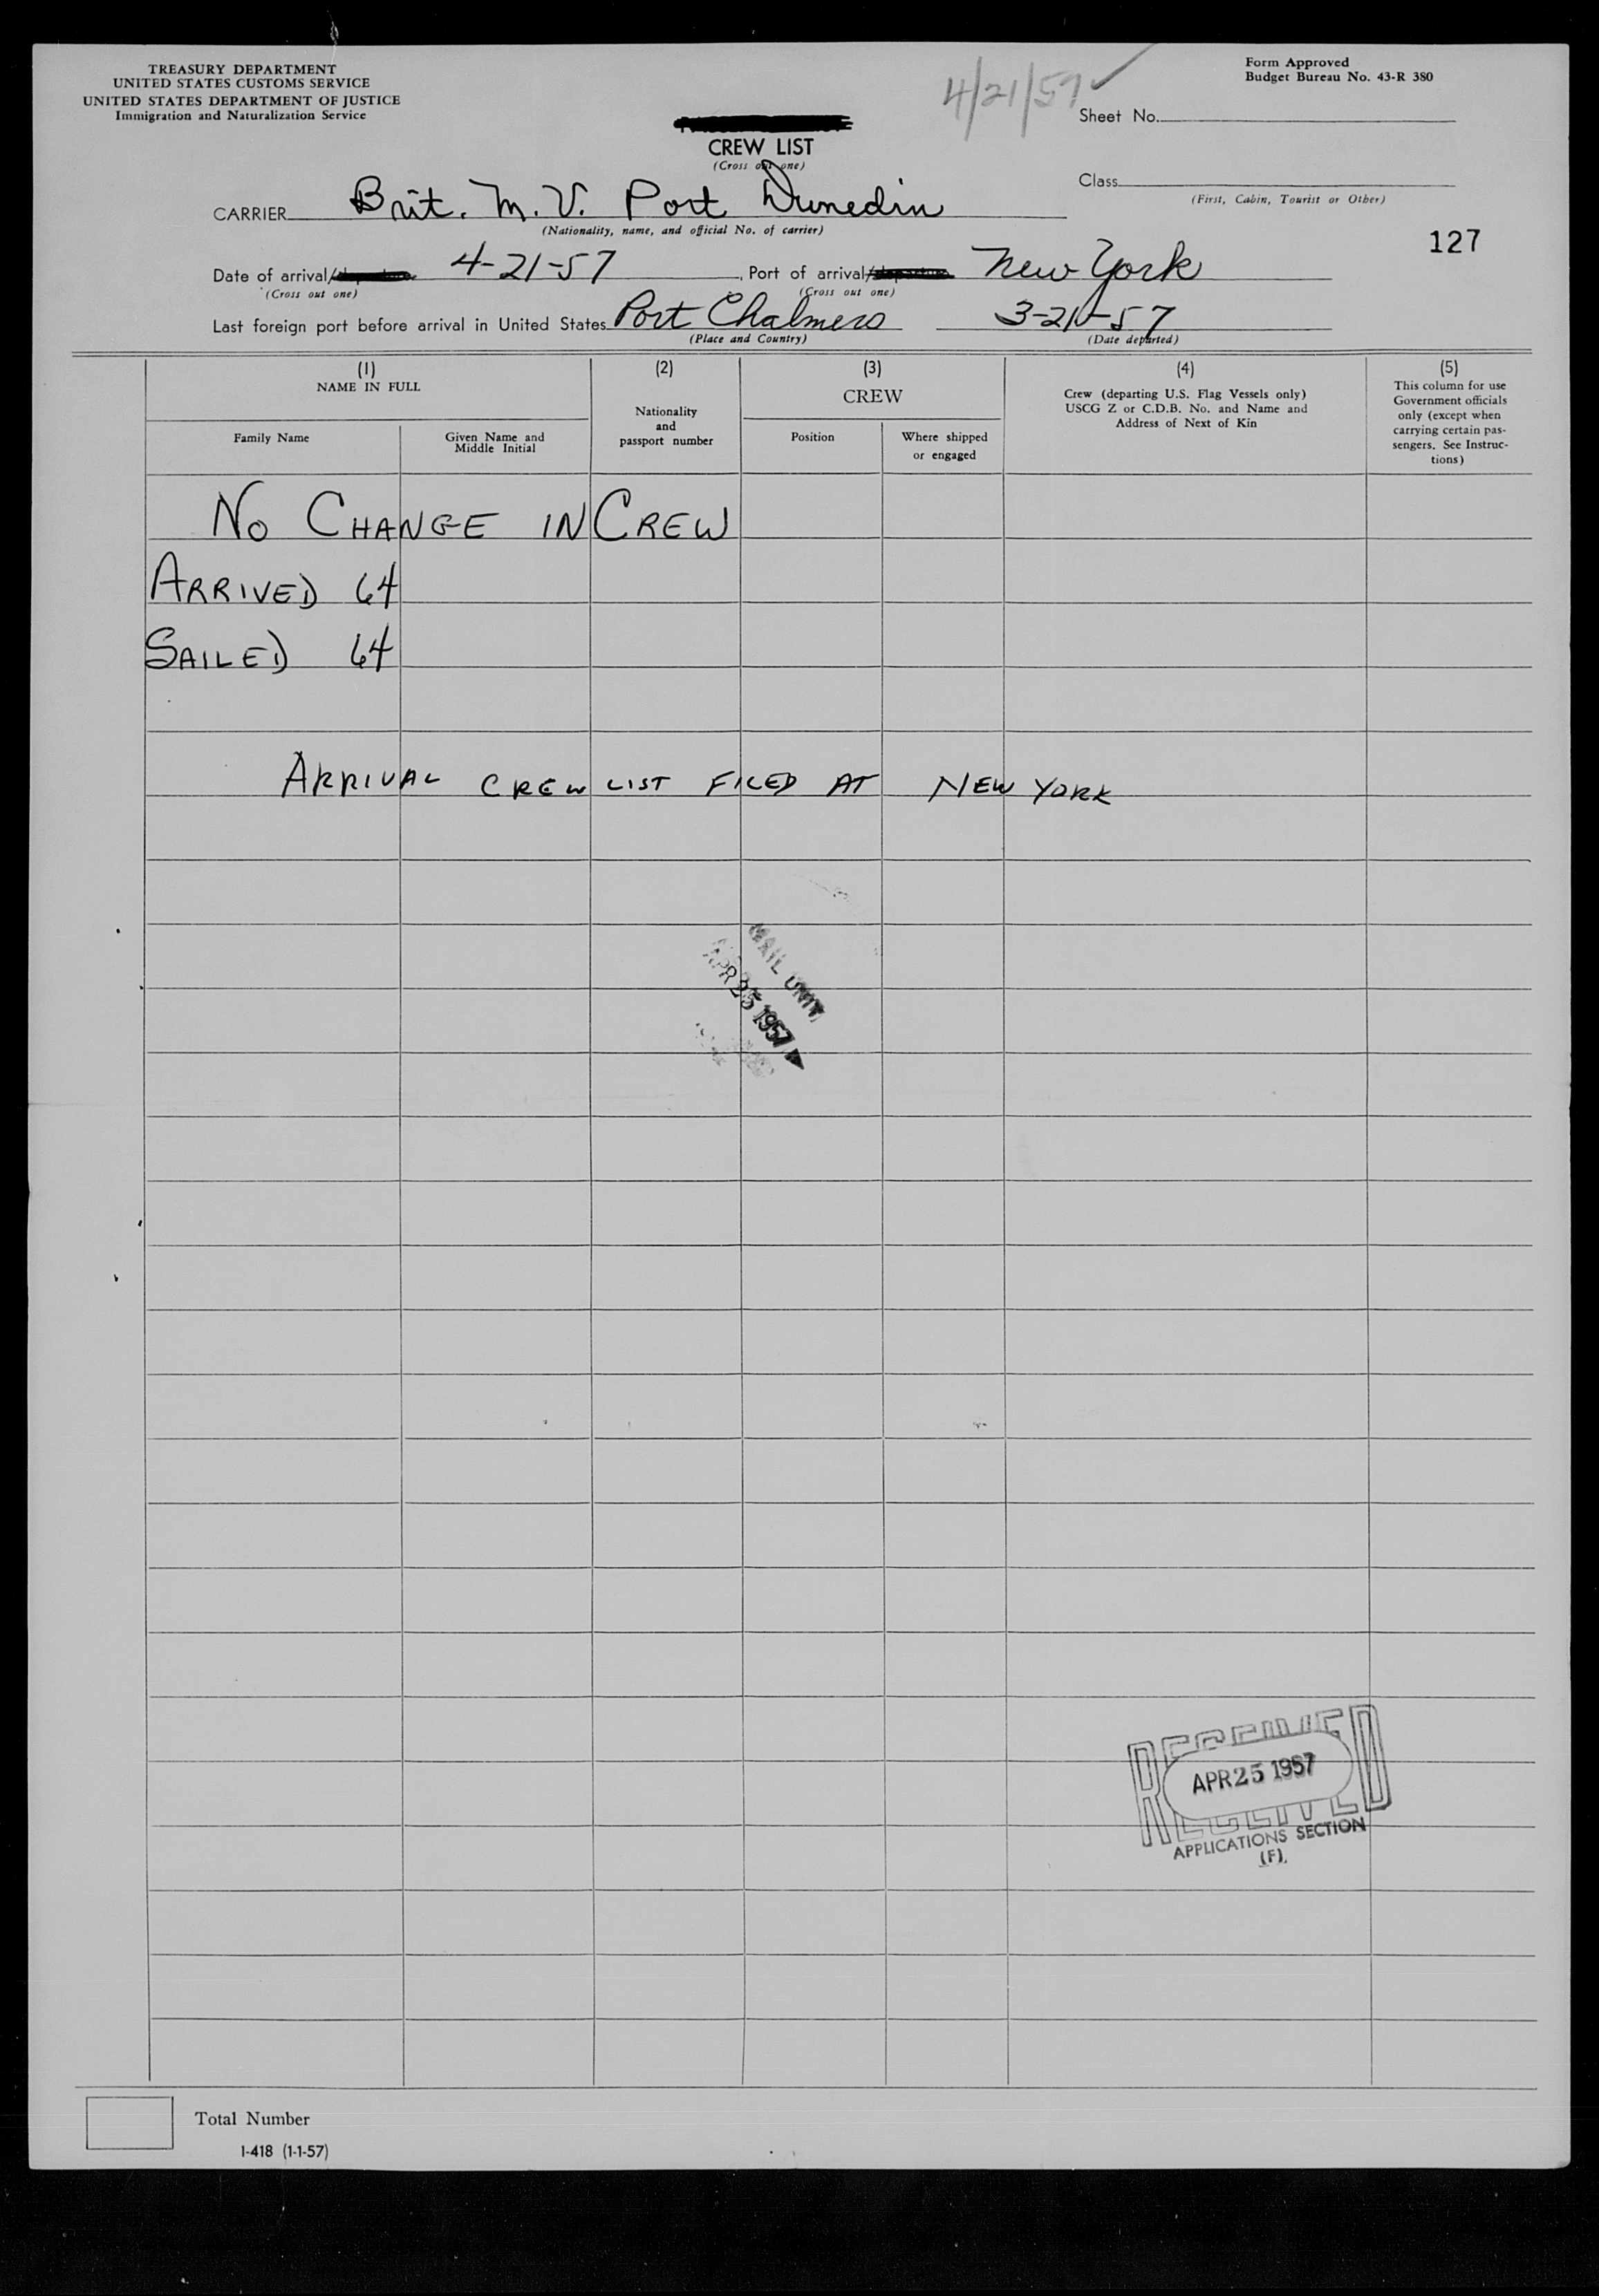 TREASURY DEPARTMENT
UNITED STATES CUSTOMS SERVICE
UNITED STATES DEPARTMENT OF JUSTICE
Immigration and Naturalization Service
4/21/57 ✓
Form Approved
Budget Bureau No. 43-R 380
Sheet No.
CREW LIST
(Cross out one)
Class
(First, Cabin, Tourist or Other)
CARRIER Brit. M.V. Port Dunedin
(Nationality, name, and official No. of carrier)
127
Date of arrival/ 4-21-57, Port of arrival/ New York
(Cross out one) (Cross out one)
Last foreign port before arrival in United States Port Chalmers 3-21-57
(Place and Country) (Date departed)
(1) (2) (3) (4) (5)
NAME IN FULL
Family Name
Given Name and
Middle Initial
Nationality
and
passport number
CREW
Position
Where shipped
or engaged
Crew (departing U.S. Flag Vessels only)
USCG Z or C.D.B. No. and Name and
Address of Next of Kin
This column for use
Government officials
only (except when
carrying certain pas-
sengers. See Instruc-
tions)
NO CHANGE IN CREW
ARRIVED 64
SAILED 64
ARRIVAL CREW LIST FILED AT NEW YORK
MAIL UNIT
APR 25 1957
RECEIVED
APR 25 1957
RECEIVED
APPLICATIONS SECTION
(F).
Total Number
I-418 (1-1-57)